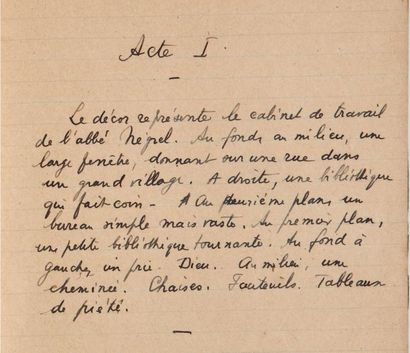 Acte I.
Le décor représente le cabinet de travail
de l'abbé Négrel. Au fond, au milieu, une
large fenêtre, donnant sur une rue dans
un grand village. A droite, une bibliothèque
qui fait coin - A Au deuxième plan, un
bureau simple mais vaste. Au premier plan,
un petite bibliothèque tournante. Au fond à
gauche, un prie. Dieu. Au milieu, une
cheminée. Chaises. Fauteuils. Tableaux
de piété.